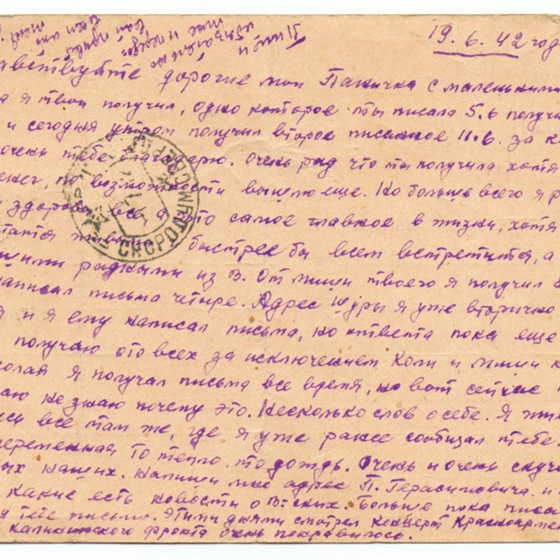 19.6.42 год
дорогие мои Паничка с маленьким
я твои получил, одно которое ты писала 5.6 получи
и сегодня утром получил второе писанное 11.6. за ко
очень тебе благодарю. Очень рад что ты получила хотя
денег, по возможности вышлю еще. Но больше всего я р
здоров все а это самое главное в жизни, хотя
быстрее бы всем встретится, а
родными из В. От миши твоего я получил
написал письма четыре. Адрес Шуры я уже вторично
и я ему написал письма, но ответа пока еще
получаю ото всех за исключением Коли и миши
я получал письма все время, но вот сейчас
не знаю почему это. Несколько слов о себе. Я
все там же, где я уже ранее сообщал тебе.
переменная то тепло, то дождь. Очень и очень скуч
наших. Напиши мне адрес П. Герасимовича. и
какие есть новости о В-ских. Больше пока писа
тебе письмо. Этими днями смотрел концерт Красноарме
Калининского фронта очень понравилось.